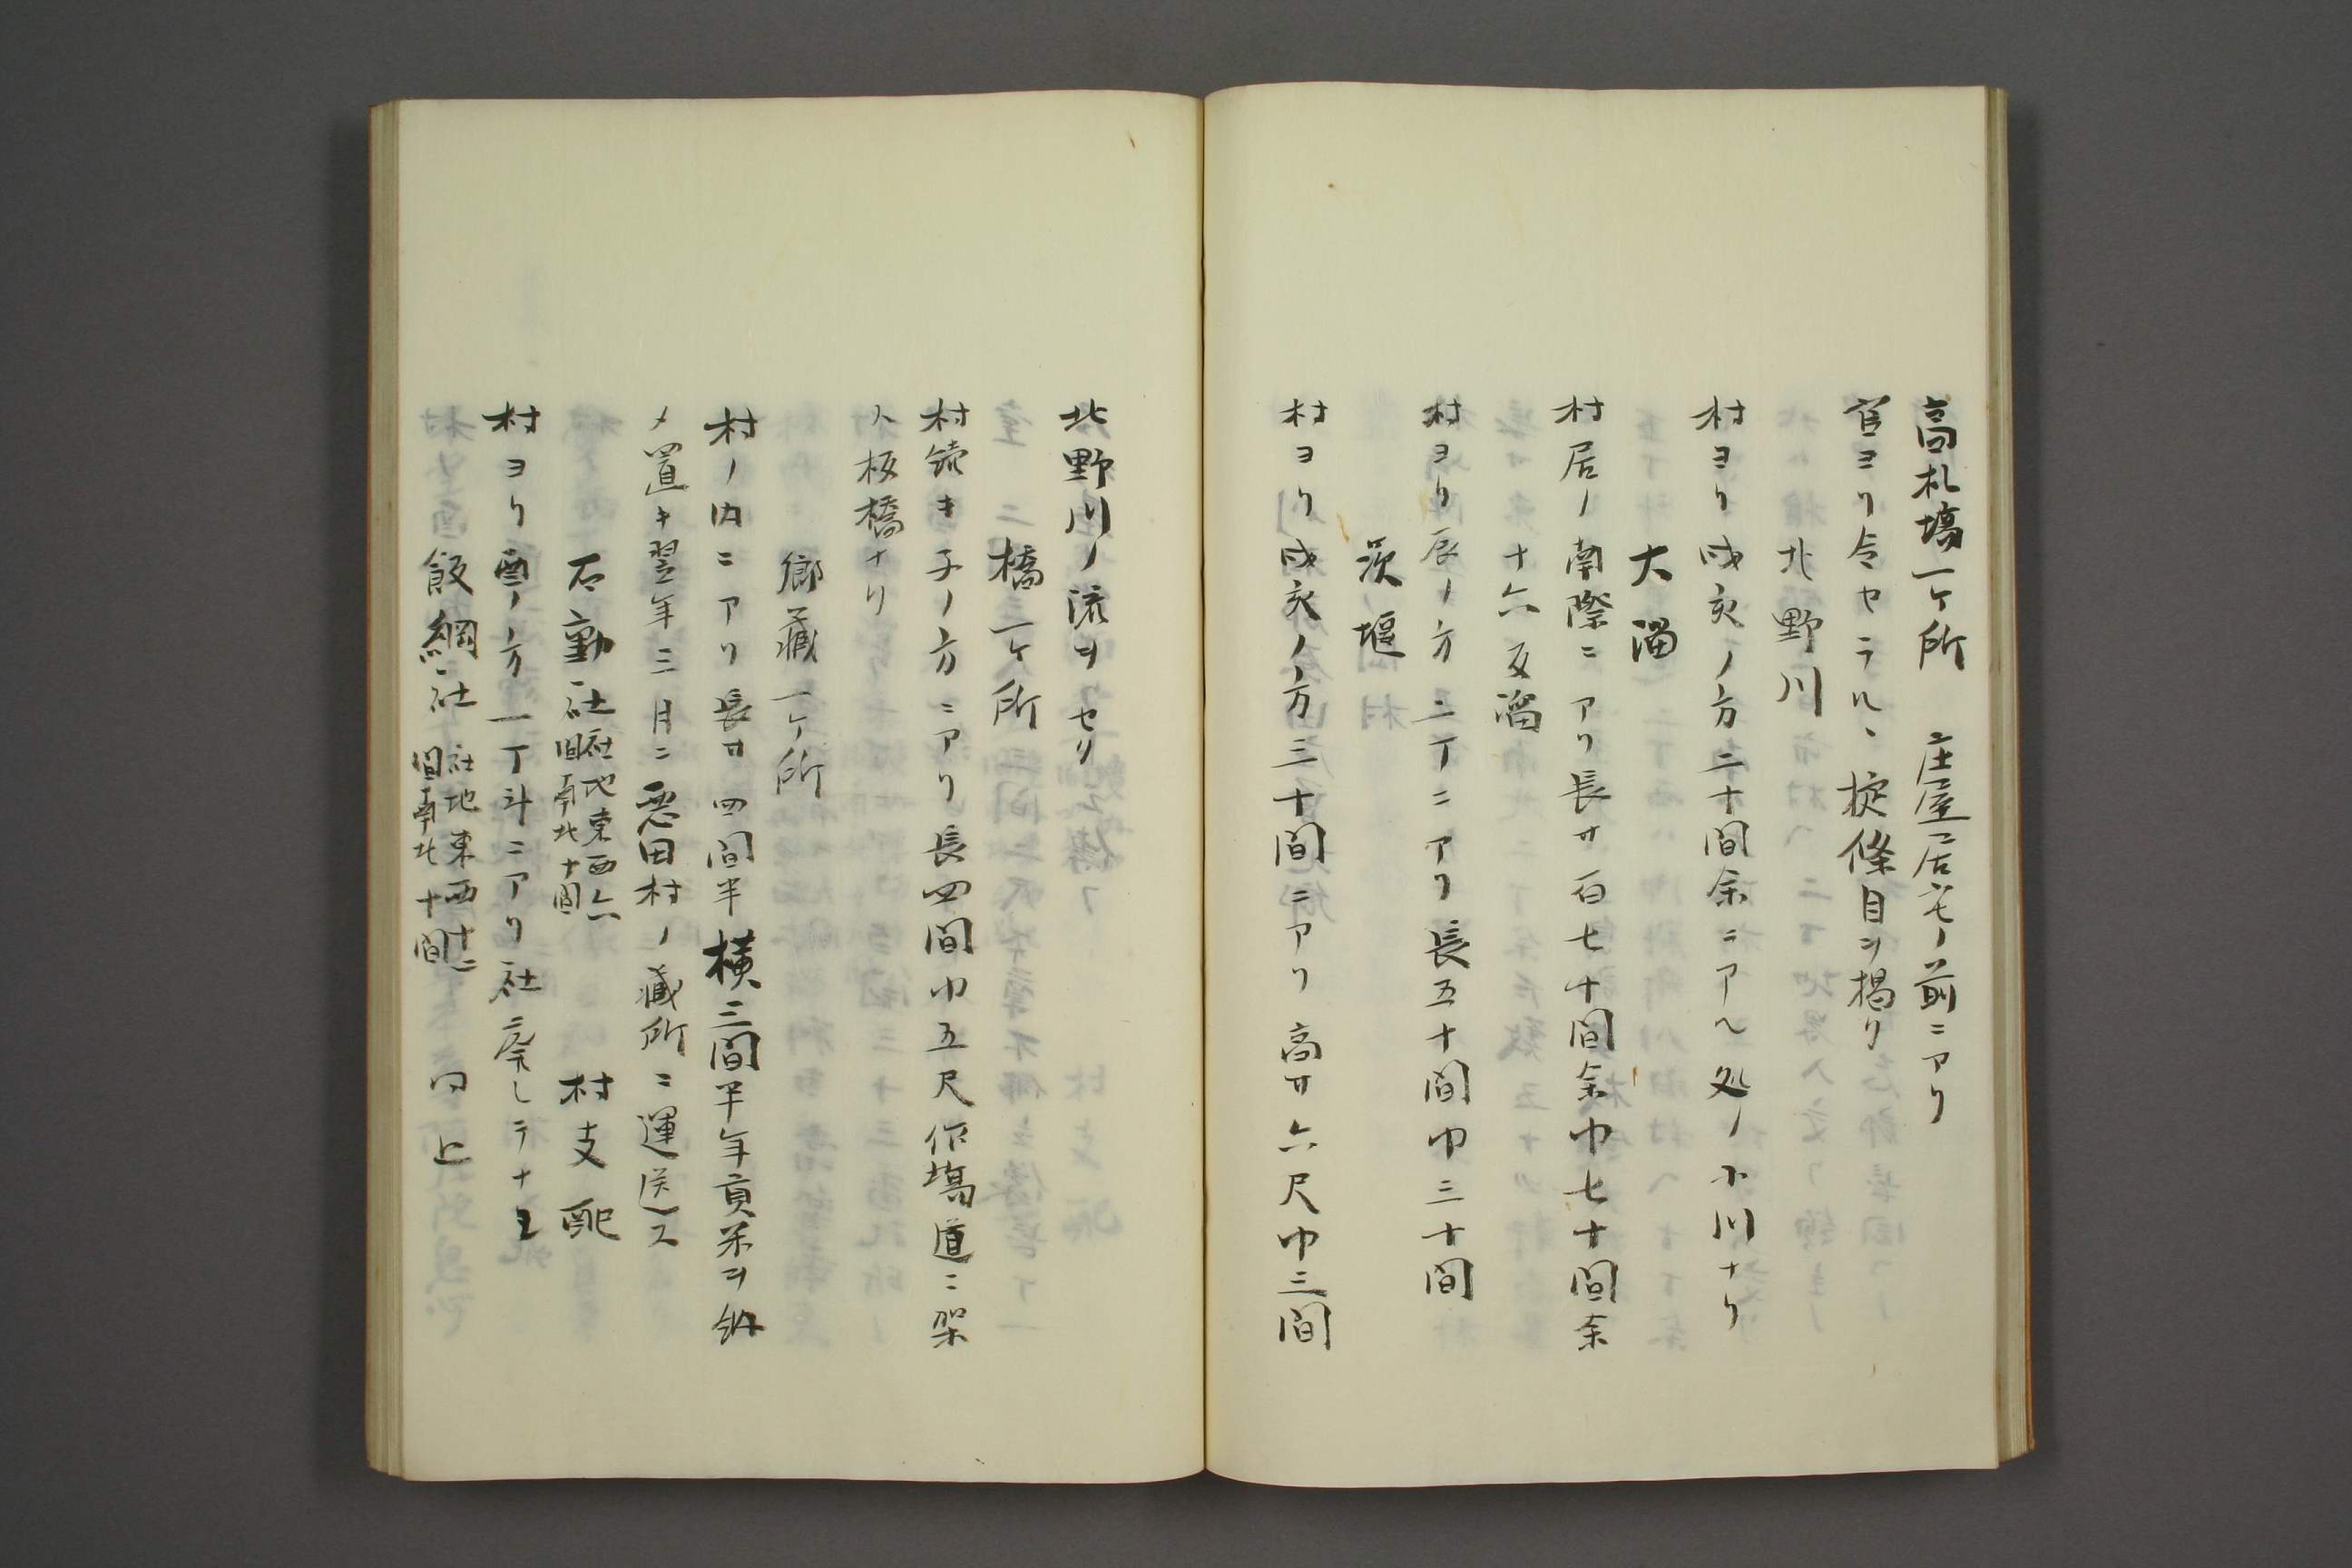 高札塲一ケ所　庄屋居宅ノ前ニアリ
官ヨリ令セラルヽ掟條目ヲ掲リ
北野川
村ヨリ戌亥ノ方二十間余ニアル処ノ小川ナリ
大溜
村居ノ南際ニアリ長サ百七十間余巾七十間余
十六反溜
村ヨリ辰ノ方二丁ニアリ長五十間巾三十間
茨堰
村ヨリ戌亥ノ方三十間ニアリ高サ六尺巾三間
北野川ノ流ヲセリ
橋一ケ所
村続キ子ノ方ニアリ長四間巾五尺作塲道ニ架
ル板橋ナリ
郷藏一ケ所
村ノ内ニアリ長サ四間半横三間半年貢米ヲ納
メ置キ翌年三月ニ悪田村ノ藏所ニ運送ス
石動社　社地東西六間南北十間　村支配
村ヨリ酉ノ方一丁斗ニアリ社廃シテナヱ
飯綱社　社地東西十二間南北十間　同上